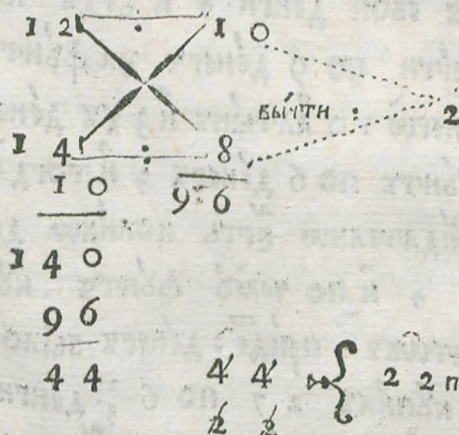 1 2 1 1 0
вычти : 2
1 4 8
1 0 9 6
1 4 0
9 6
4 4 4 4 { 2 2 п
2 2